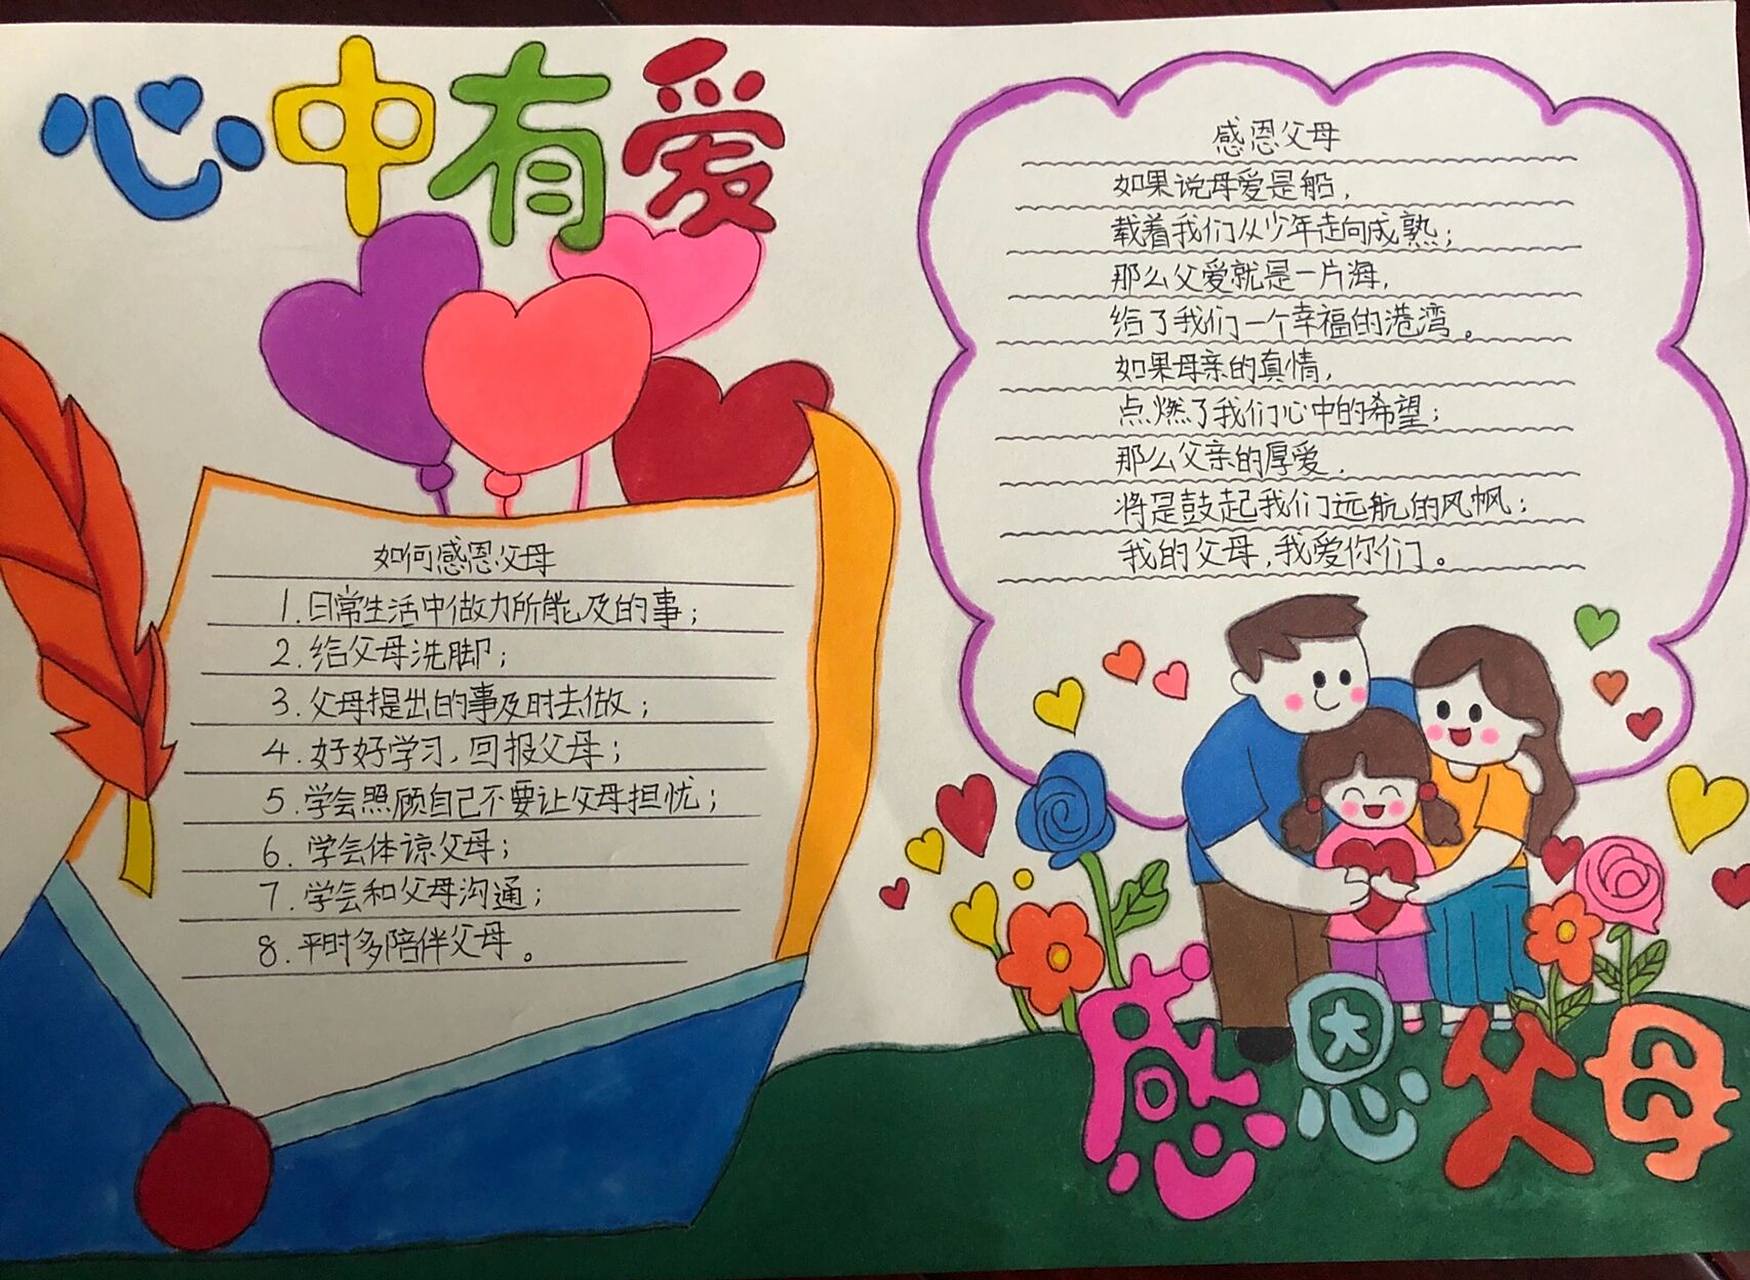 心中有爱
如何感恩父母
1.日常生活中做力所能及的事；
2.给父母洗脚；
3.父母提出的事及时去做；
4.好好学习，回报父母；
5.学会照顾自己不要让父母担忧；
6.学会体谅父母；
7.学会和父母沟通；
8.平时多陪伴父母。
感恩父母
如果说母爱是船，
载着我们从少年走向成熟；
那么父爱就是一片海，
给了我们一个幸福的港湾。
如果母亲的真情，
点燃了我们心中的希望；
那么父亲的厚爱，
将是鼓起我们远航的风帆；
我的父母，我爱你们。
感恩父母